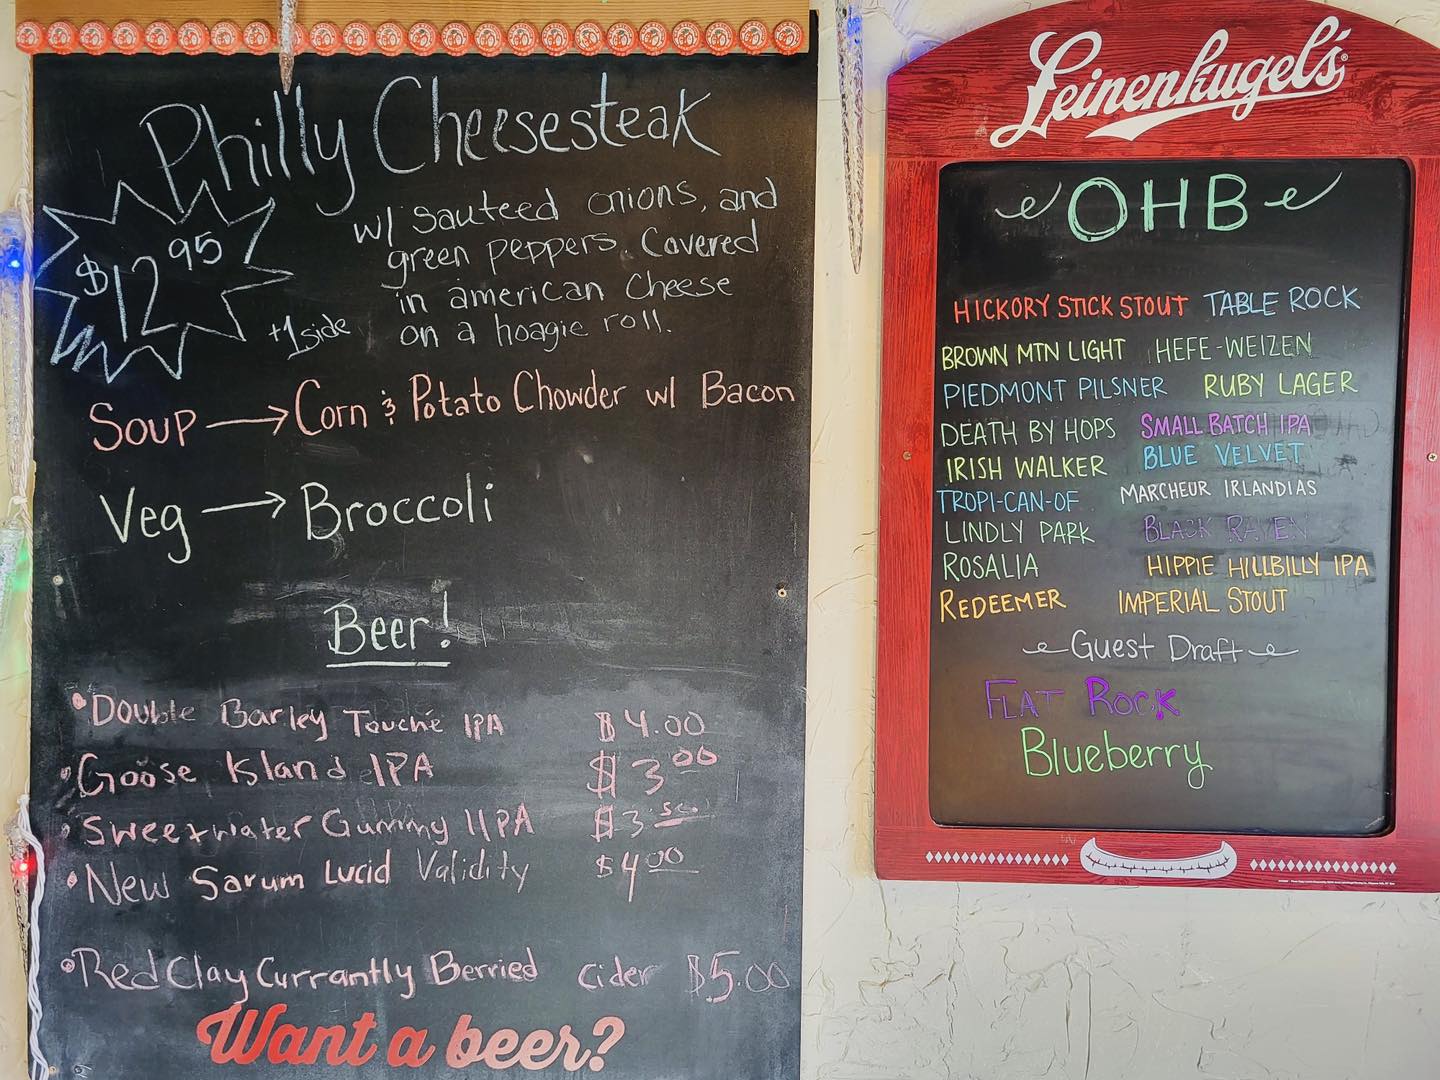 Philly Cheesesteak
$12.95
+1 side
w/ sauteed onions, and
green peppers. Covered
in american cheese
on a hoagie roll.
Soup → Corn & Potato Chowder w/ Bacon
Veg → Broccoli
Beer!
• Double Barley Touché IPA $4.00
• Goose Island IPA $3.00
• Sweetwater Gummy IIPA $3.50
• New Sarum Lucid Validity $4.00
• Red Clay Currantly Berried cider $5.00
Want a beer?
Leinenkugel's®
OHB
HICKORY STICK STOUT TABLE ROCK
BROWN MTN LIGHT HEFE-WEIZEN
PIEDMONT PILSNER RUBY LAGER
DEATH BY HOPS SMALL BATCH IPA
IRISH WALKER BLUE VELVET
TROPI-CAN-OF MARCHEUR IRLANDIAS
LINDLY PARK BLACK RAVEN
ROSALIA HIPPIE HILLBILLY IPA
REDEEMER IMPERIAL STOUT
Guest Draft
FLAT ROCK
Blueberry